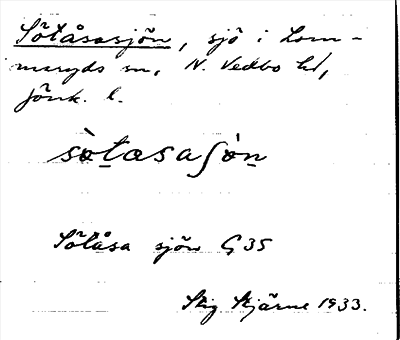 Sötåsasjön, sjö i Lom-
maryds sn, N. Vedbo hd,
Jönk. l.
sò̱t̲asaʃò̱n̲
Sötåsa sjön G 35
Stig Skjärne 1933.